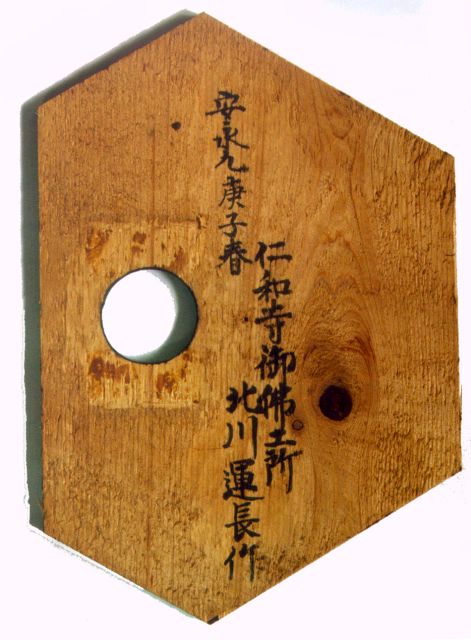 安永九庚子春
仁和寺御佛工所
北川運長作